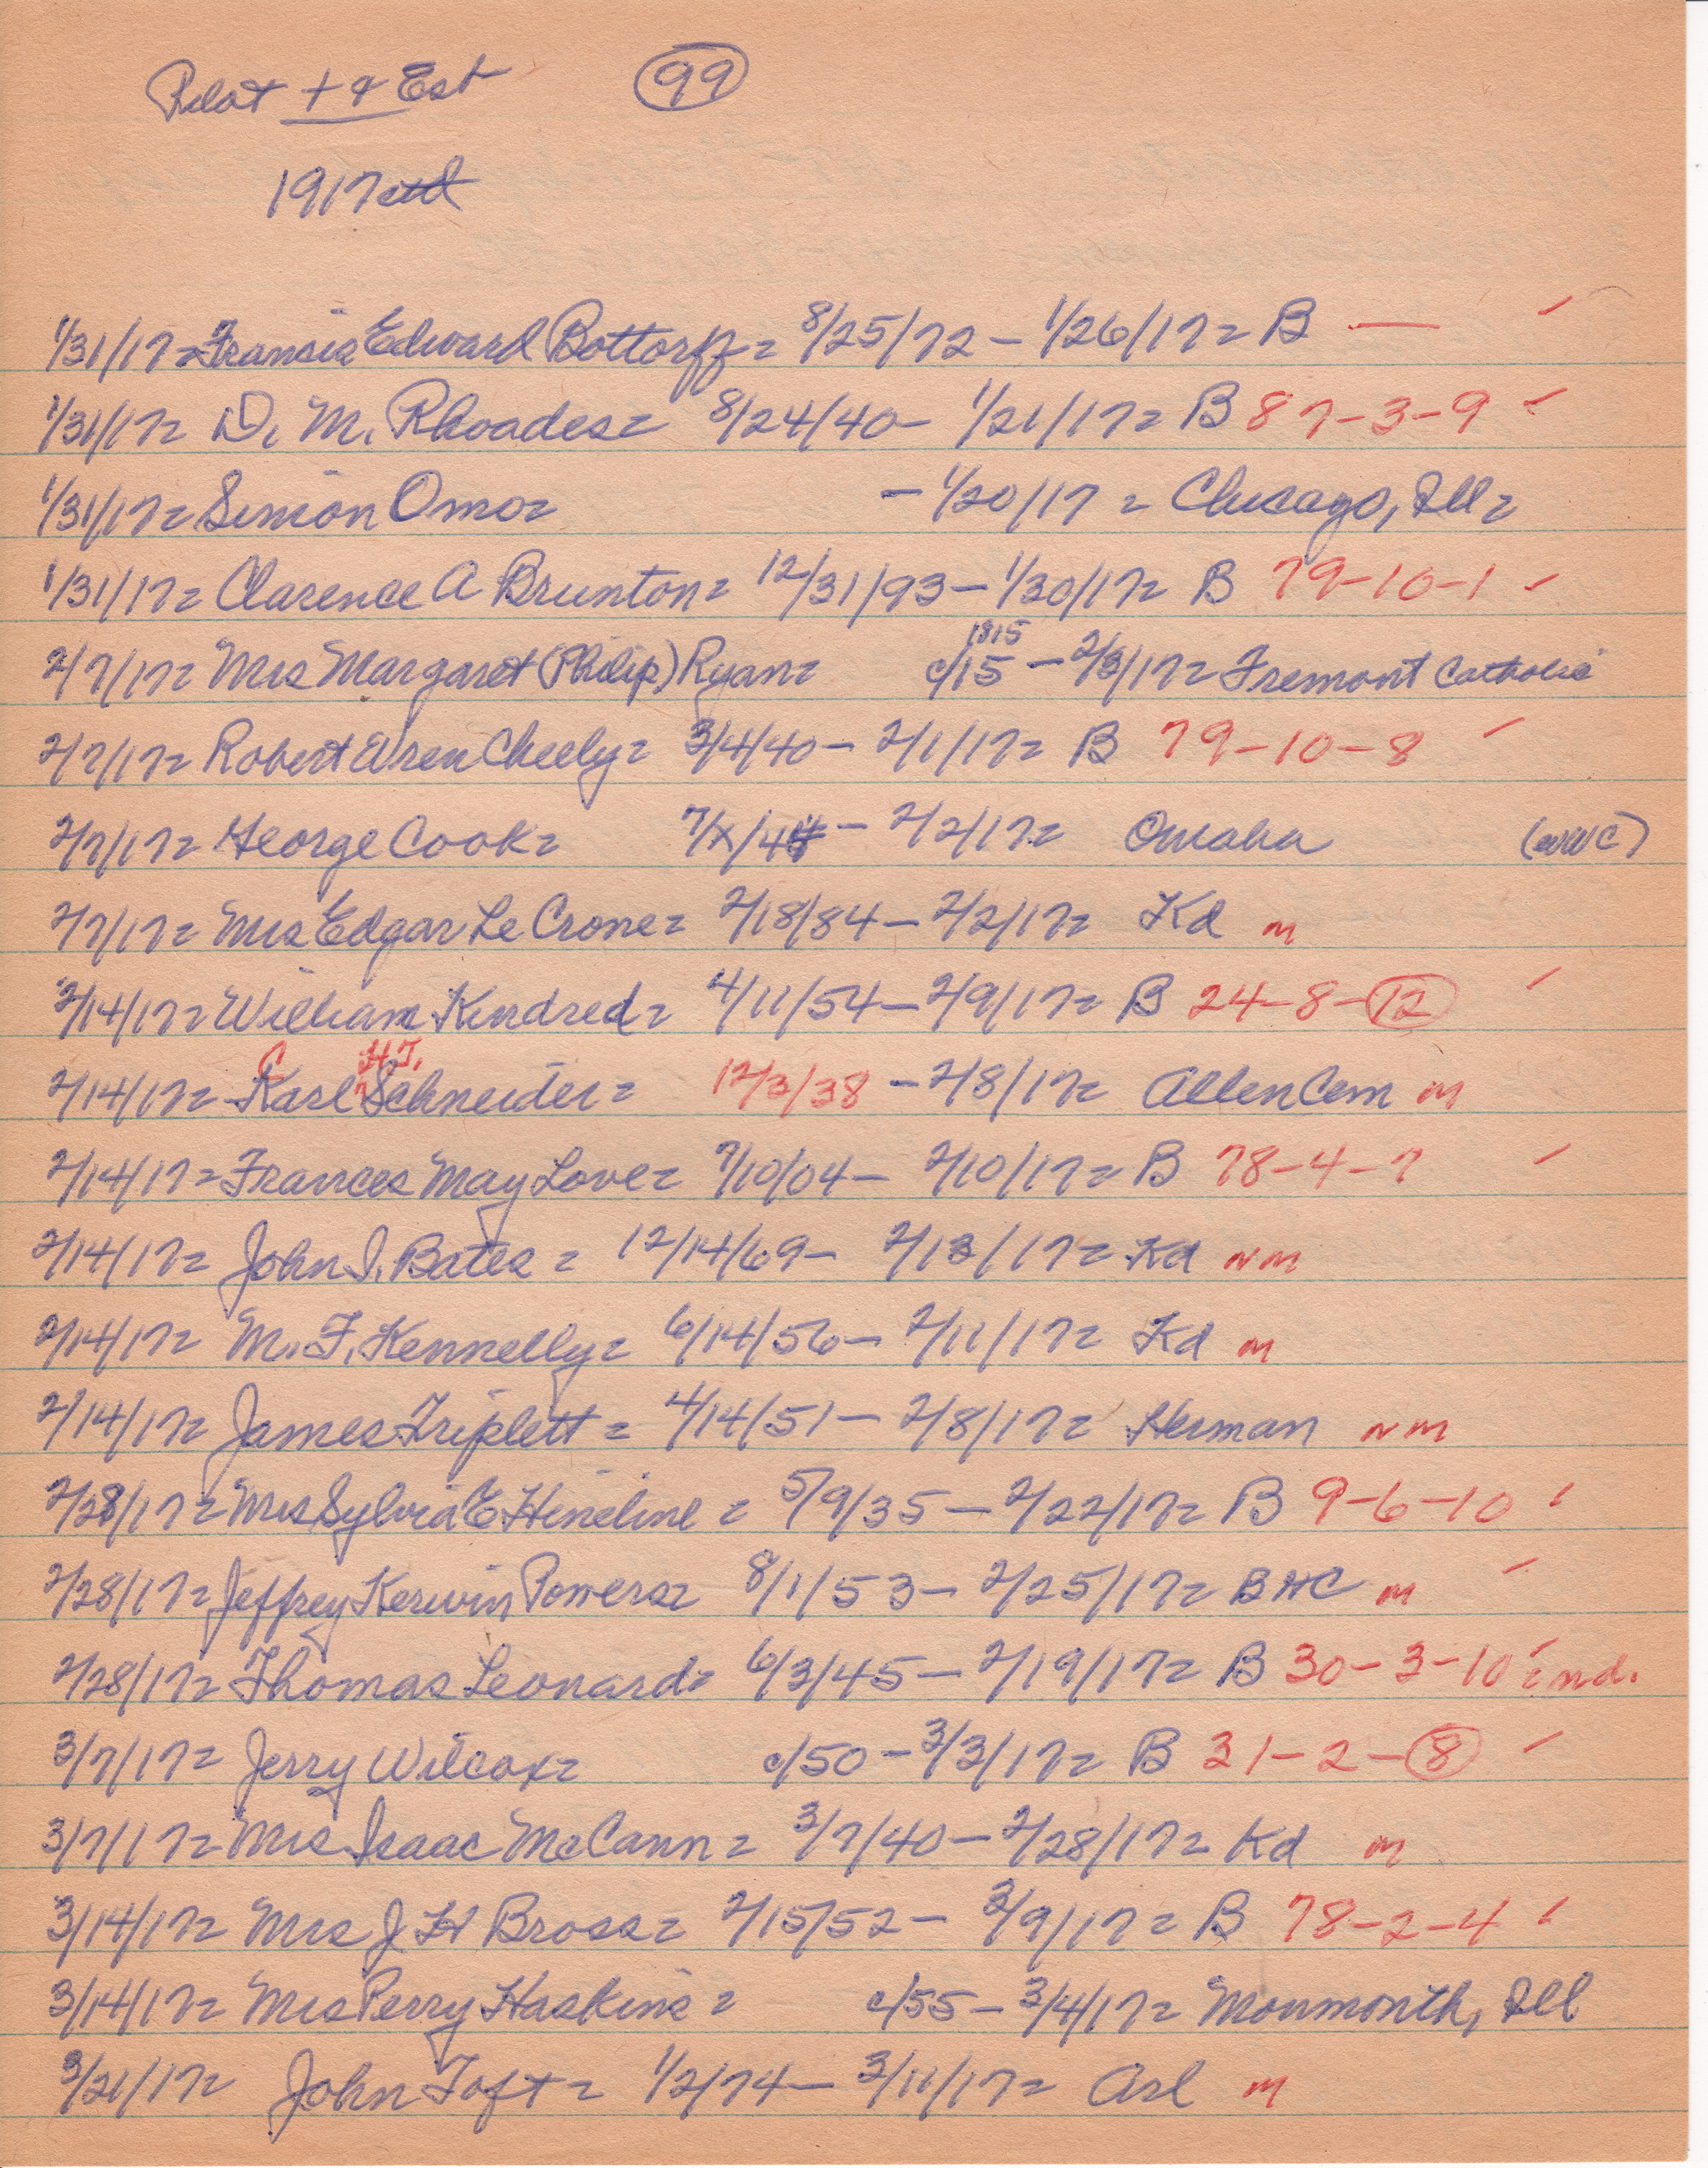 Pilot + & Est 99
1917 ctd
1/31/17= Francis Edward Bottorff= 8/25/72 - 1/26/17= B —
1/31/17= D. M. Rhoades= 8/24/40- 1/21/17= B 87-3-9
1/31/17= Simon Omo= - 1/20/17 = Chicago, Ill=
1/31/17= Clarence A Brunton= 12/31/93 - 1/30/17= B 79-10-1
1815
2/7/17= Mrs Margaret (Philip) Ryan= c/15 - 2/3/17= Fremont Catholic
2/7/17= Robert Wren Cheely= 3/4/40- 2/1/17= B 79-10-8
2/7/17= George Cook= 7/x/44 - 2/2/17= Omaha (WWC)
2/7/17= Mrs Edgar Le Crone= 2/18/84- 2/2/17= Kd m
2/14/17= William Kindred= 4/11/54- 2/9/17= B 24-8-12
C H.T.
2/14/17= Karl Schneider= 12/3/38 - 2/8/17= Allen Cem m
2/14/17= Frances May Love= 7/10/04- 2/10/17= B 78-4-7
2/14/17= John I. Bates = 12/14/69- 2/13/17= Kd nm
2/14/17= M. F. Kennelly= 6/14/56- 2/11/17= Kd m
2/14/17= James Triplett = 4/14/51- 2/8/17= Herman nm
2/28/17= Mrs Sylvia E Hineline = 5/9/35- 2/22/17= B 9-6-10
2/28/17= Jeffrey Kerwin Powers= 8/1/53- 2/25/17= BHC m
2/28/17= Thomas Leonard= 6/3/45- 2/19/17= B 30-3-10 = nd.
3/7/17= Jerry Wilcox= c/50 - 3/3/17= B 31-2-8
3/7/17= Mrs Isaac McCann= 3/7/40- 2/28/17= Kd m
3/14/17= Mrs J H Bross= 2/15/52- 3/9/17= B 78-2-4
3/14/17= Mrs Perry Haskins = c/55- 3/4/17= Monmonth, Ill
3/21/17= John Toft = 1/2/74- 3/11/17= Arl m